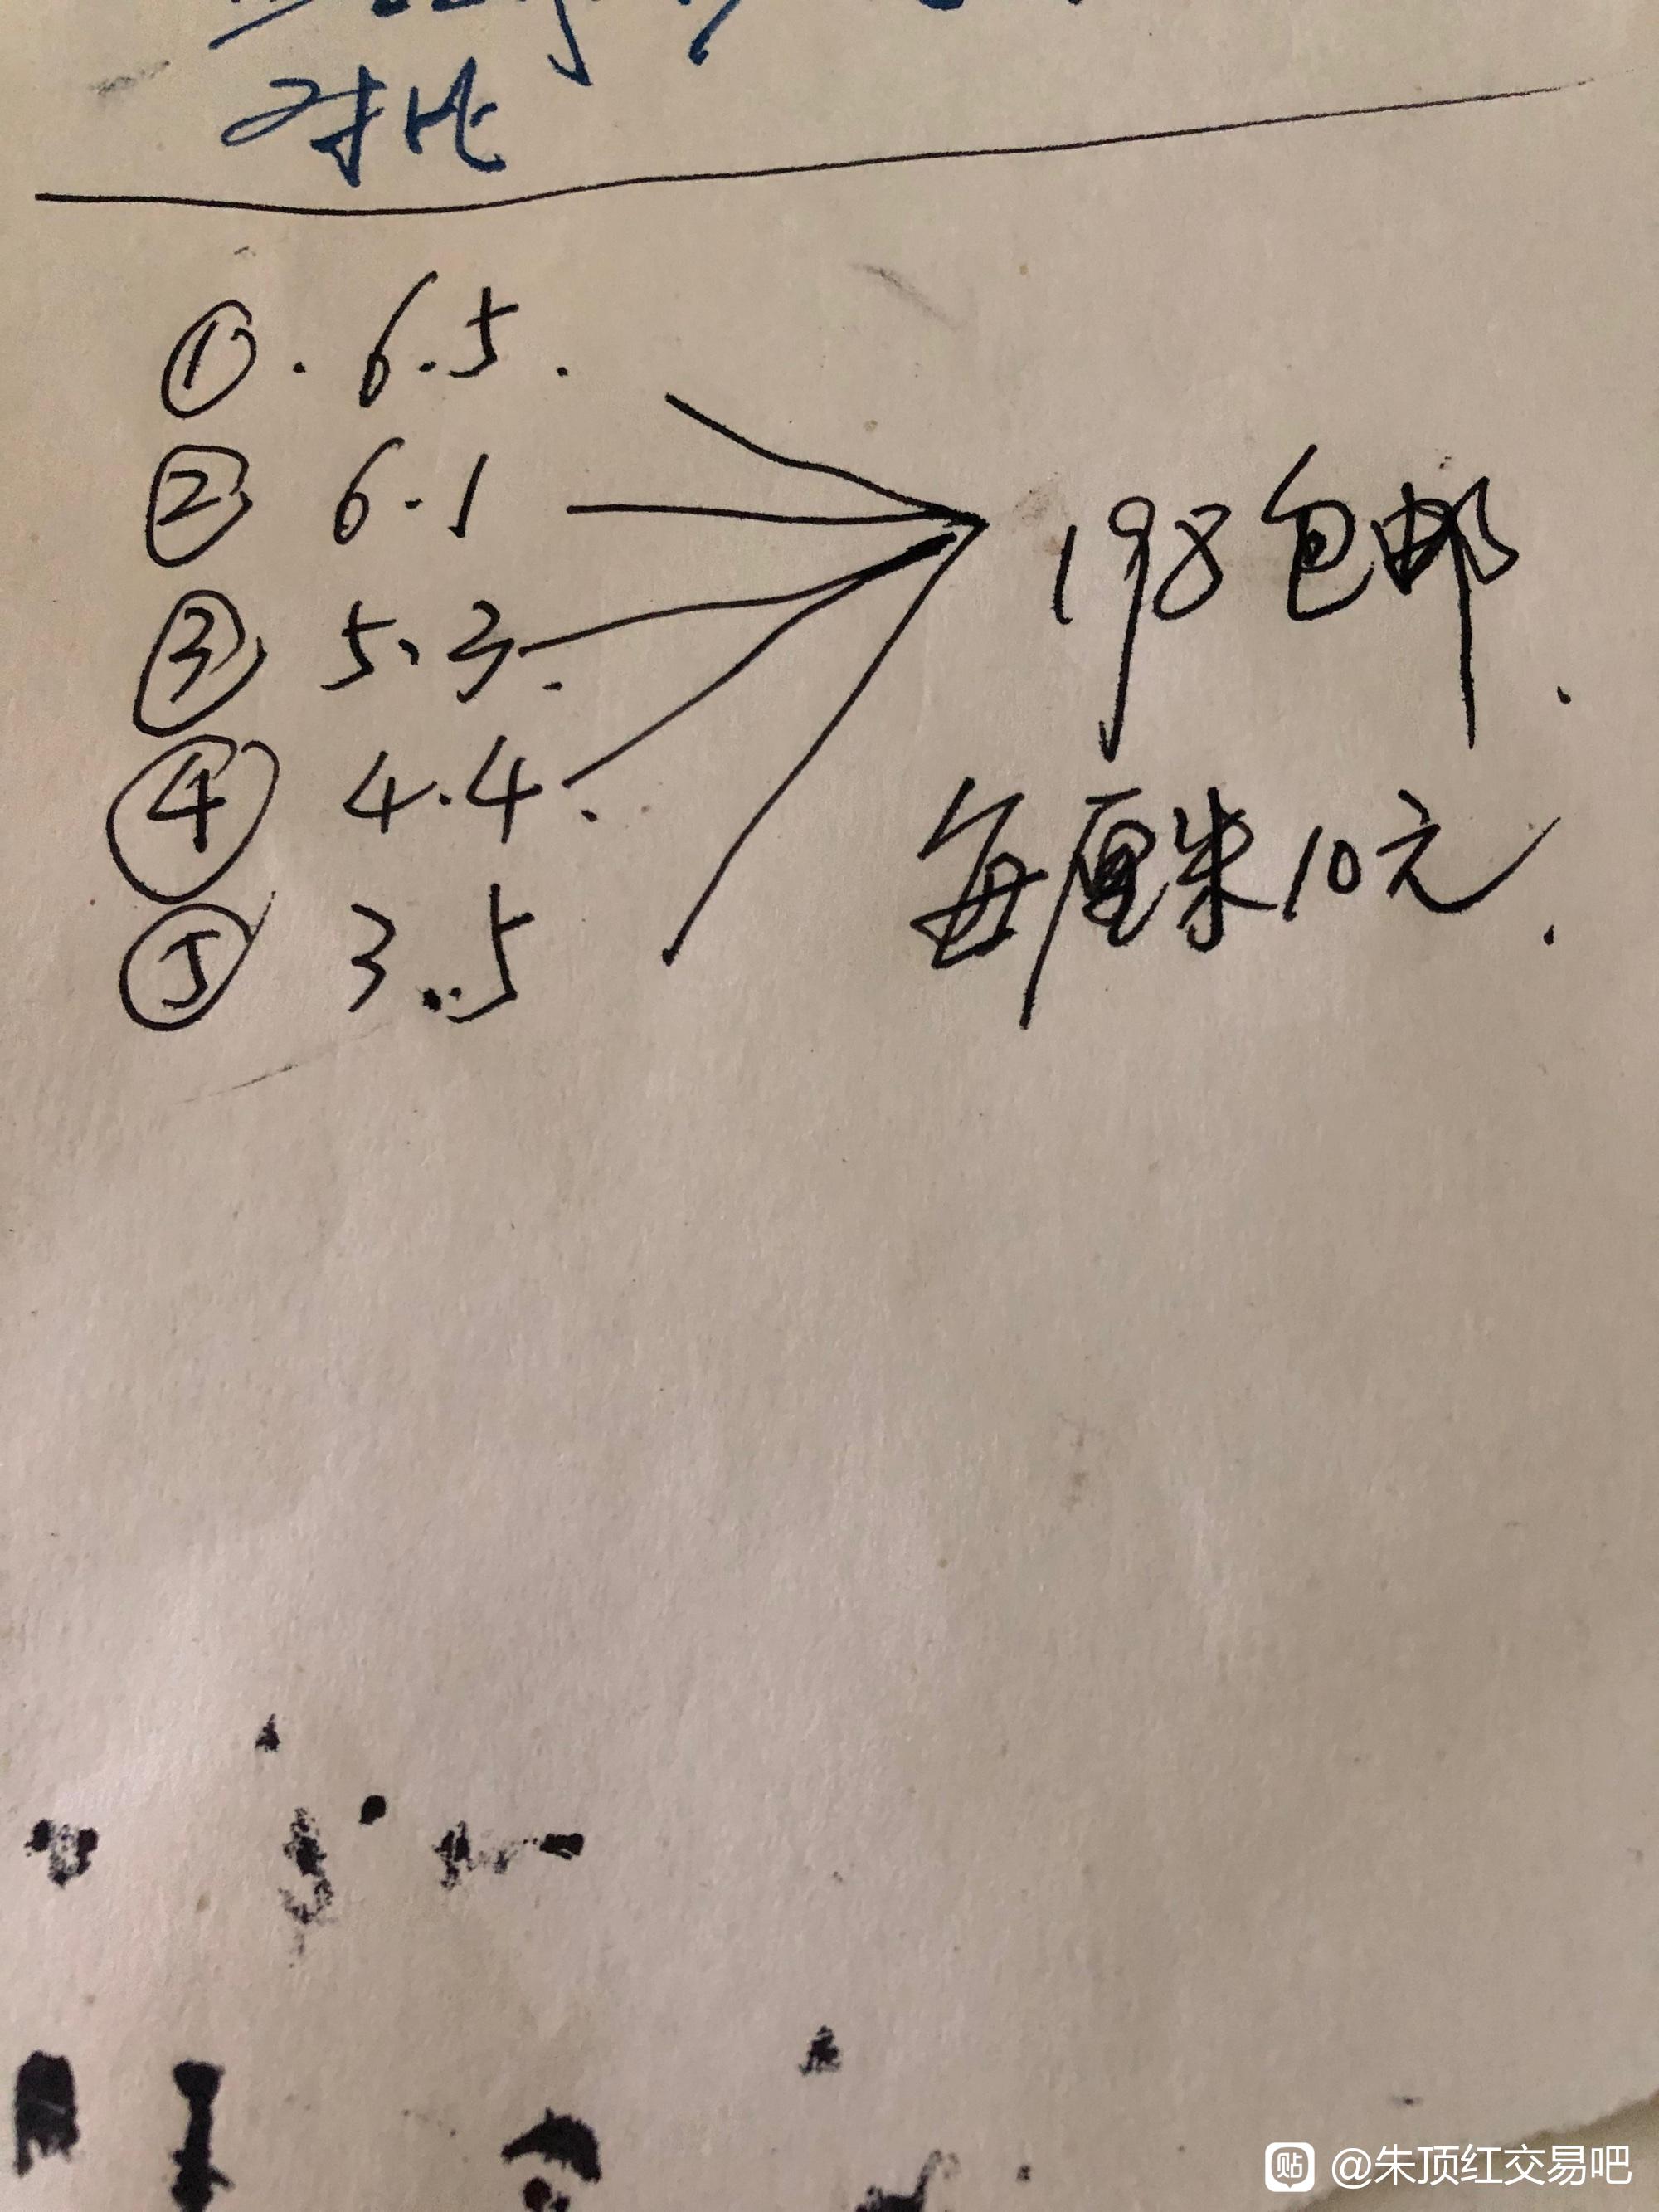 对比
① . 6.5 .
② 6.1
③ 5.3.
④ 4.4.
⑤ 3.5
198包邮.
每厘米10元.
贴 @朱顶红交易吧